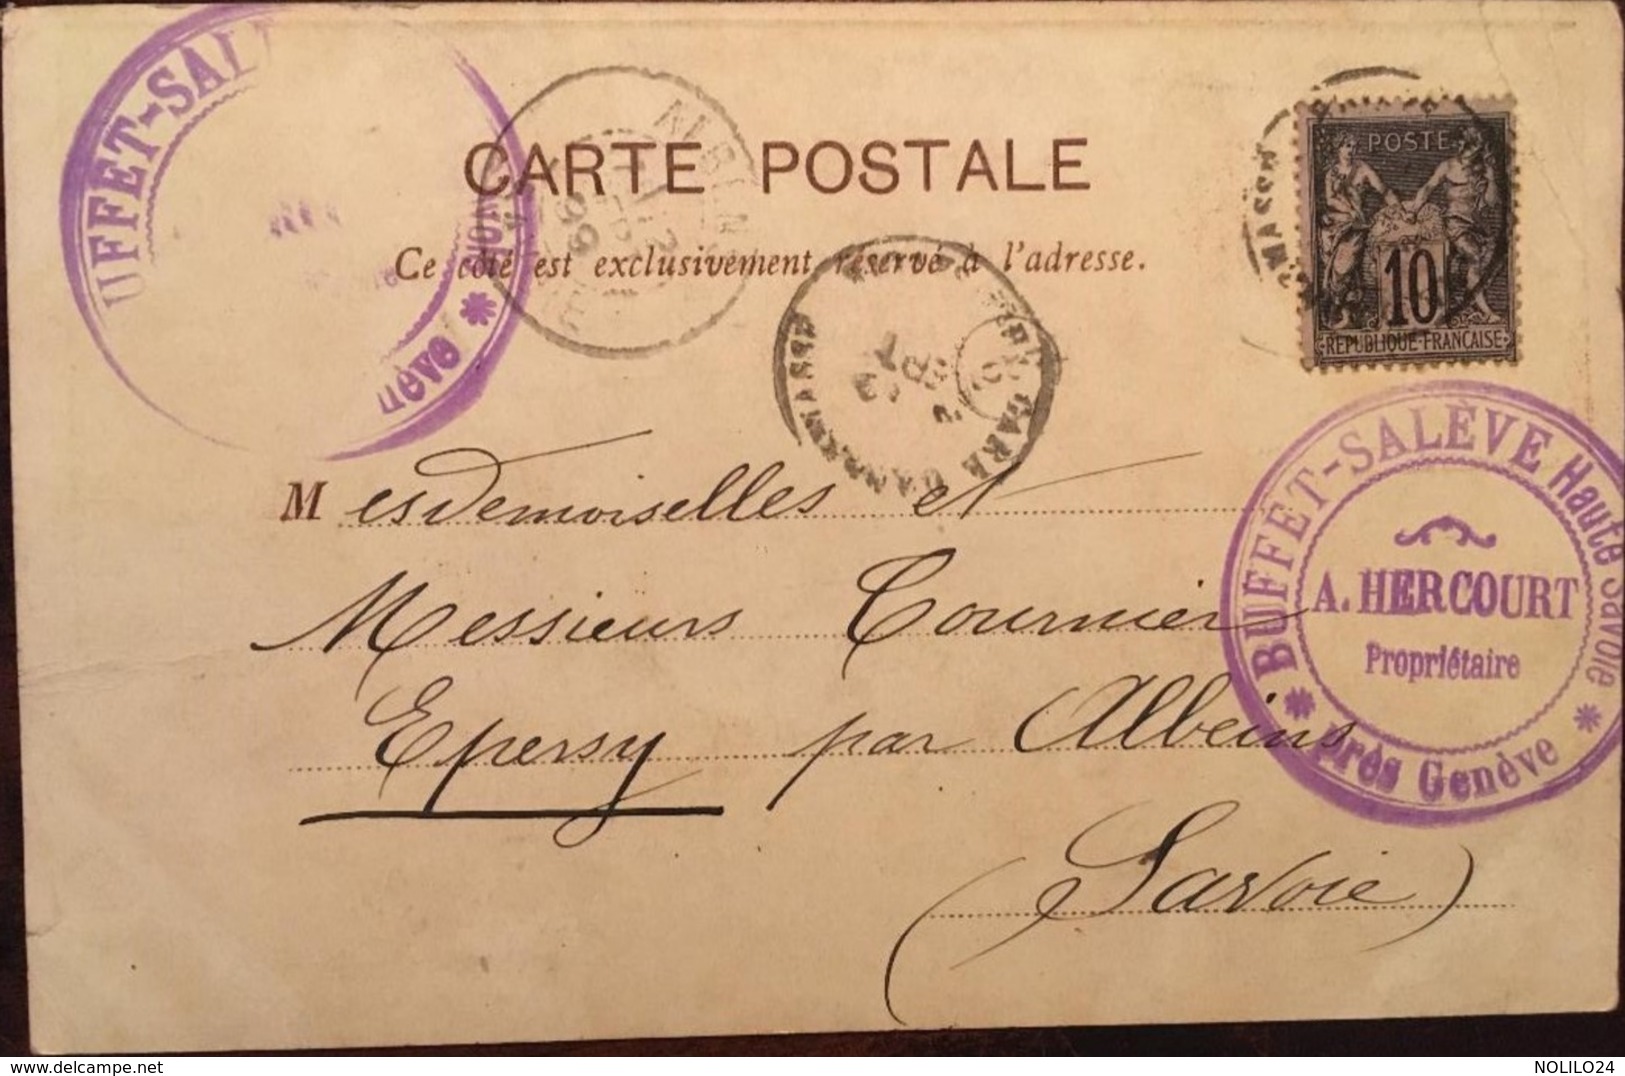 UFFET-SAL
nève
CARTE POSTALE
Ce côté est exclusivement réservé à l'adresse.
POSTE
10
REPUBLIQUE FRANÇAISE
GARE D'ANNEMASSE
SEPT
BUFFET-SALÈVE Haute Savoie
A. HERCOURT
Propriétaire
Près Genève
Mesdemoiselles et
Messieurs Tournier
Epersy par Albeins
(Savoie)
www.delcampe.net
NOLILO24